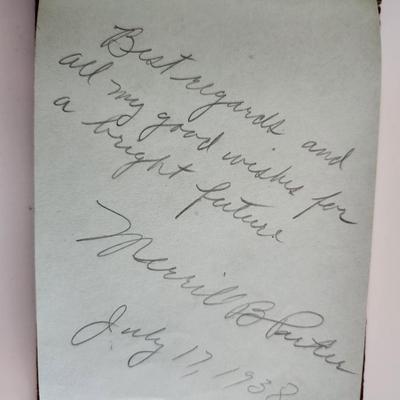 Best regards and
all my good wishes for
a bright future
Merrill B
July 17, 1938